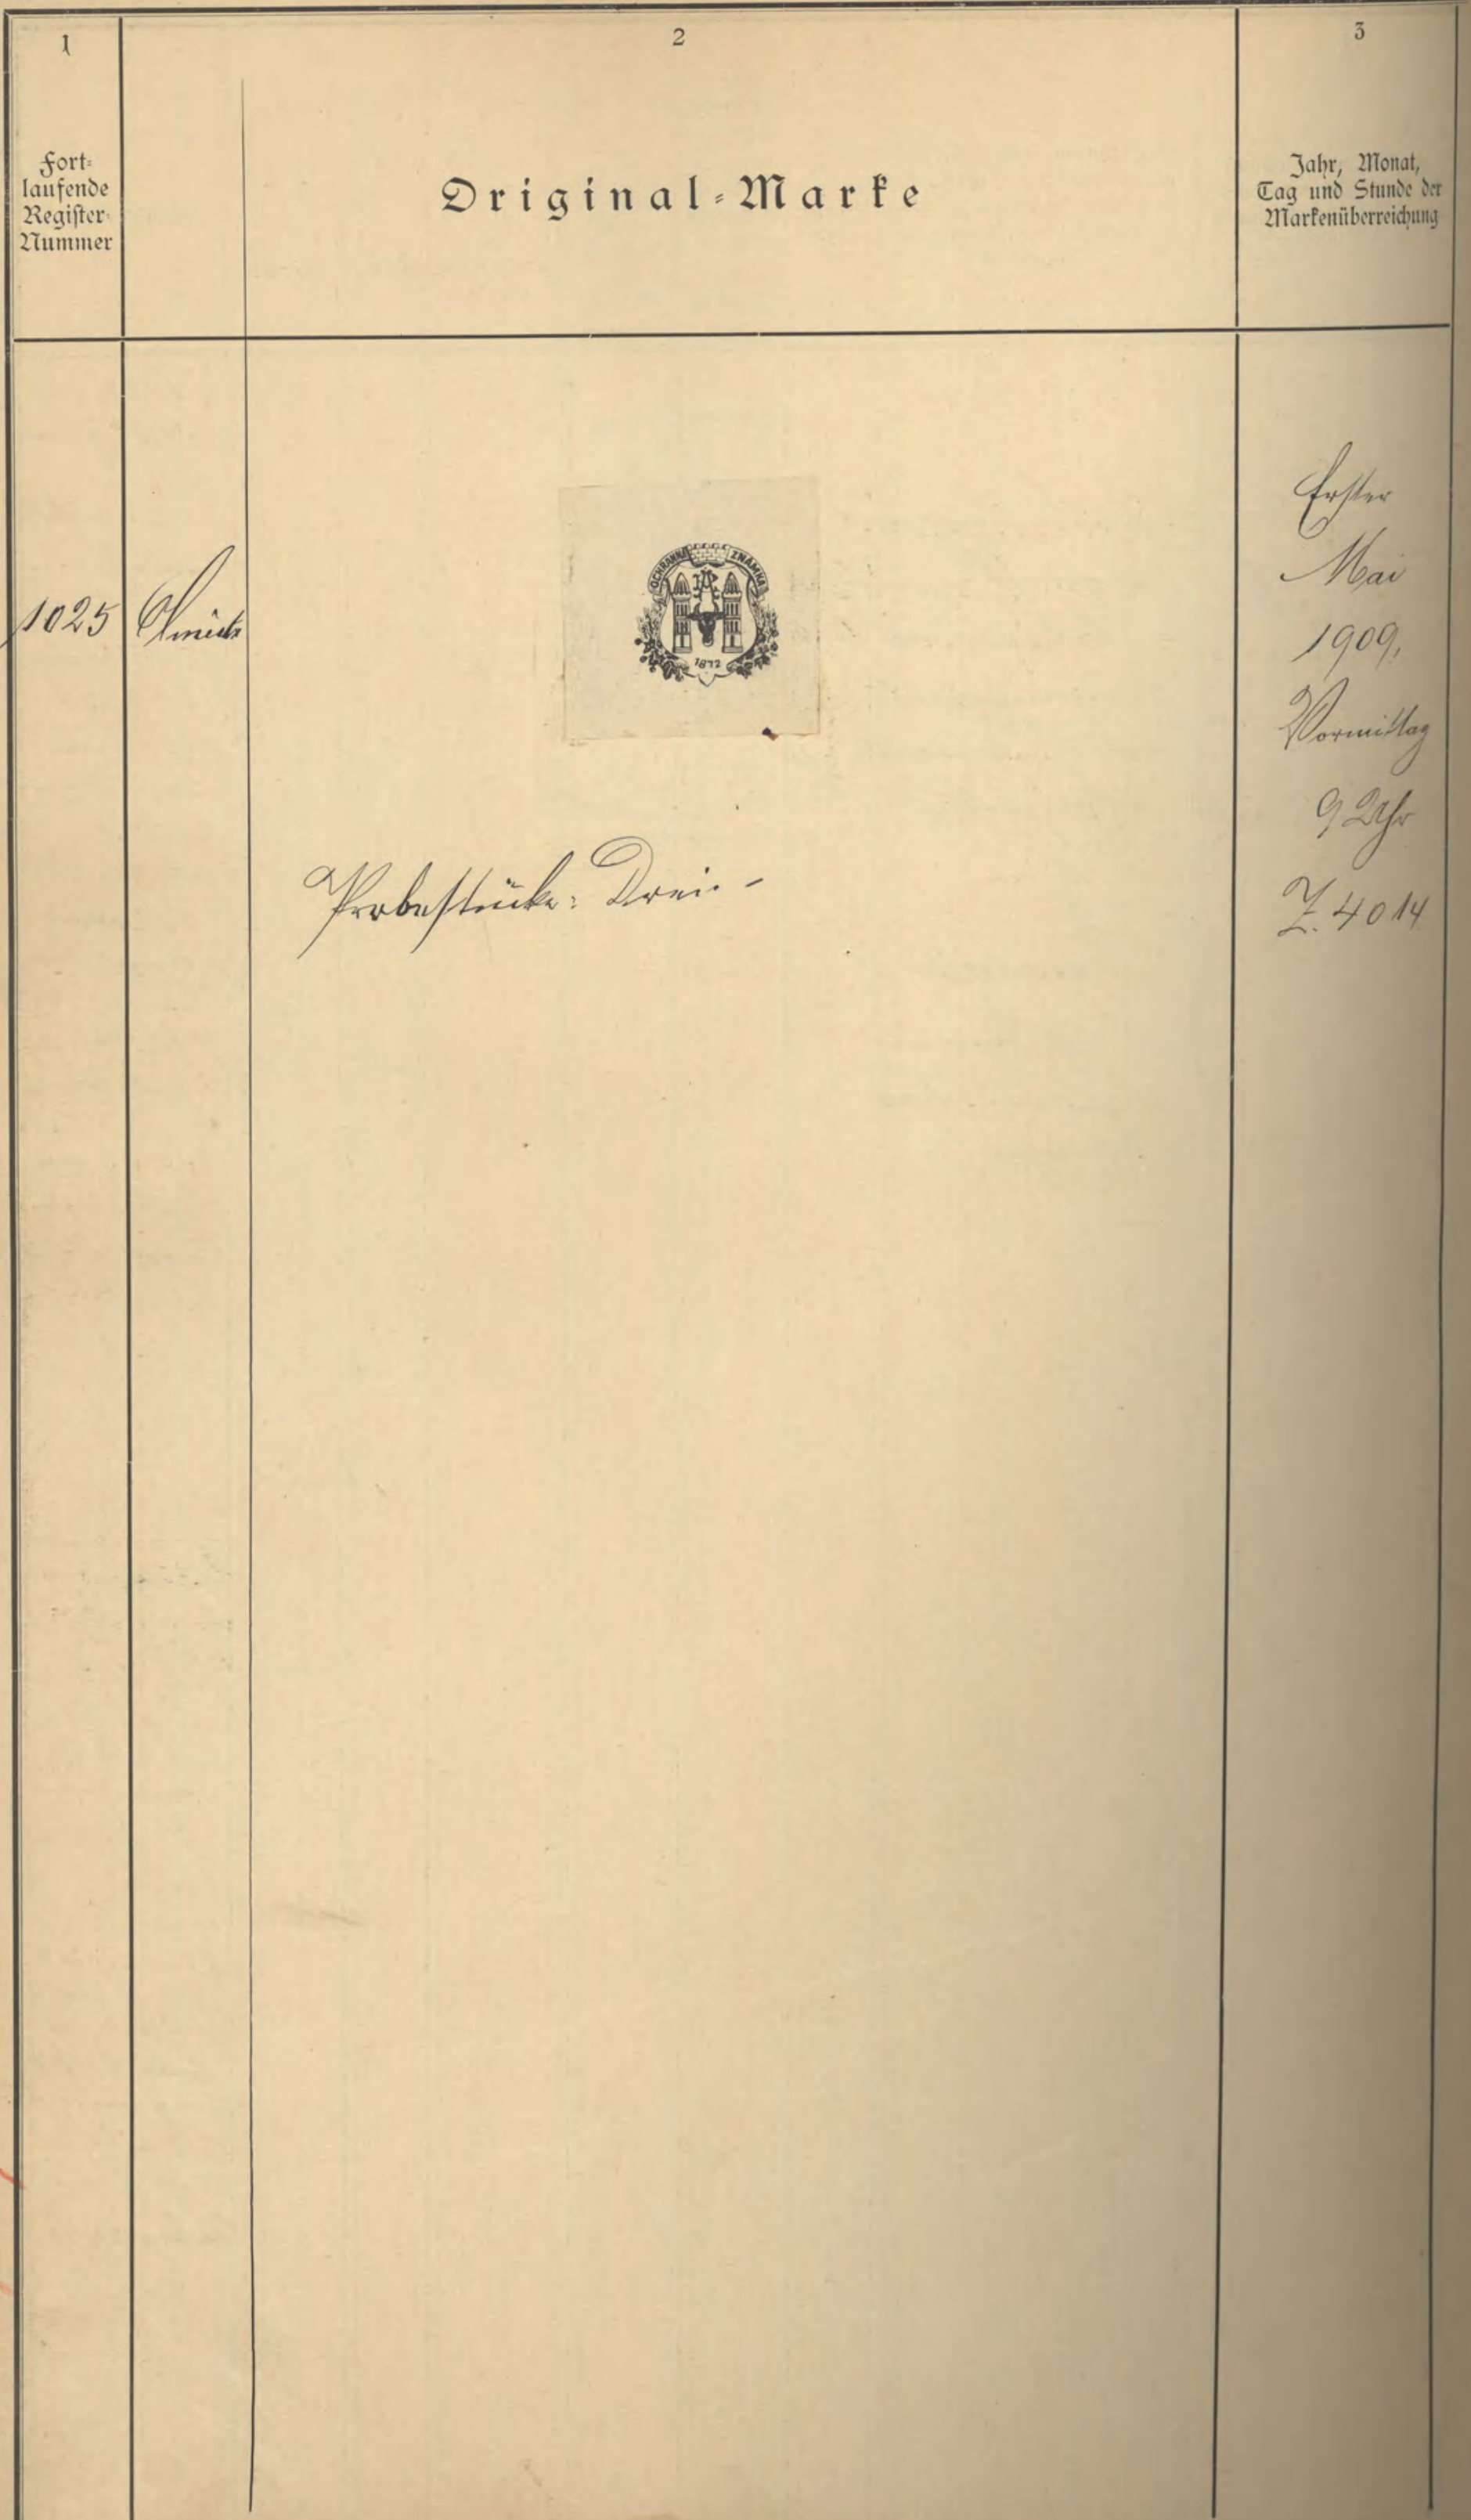 1
2
3
Fort-
laufende
Register-
Nummer
Original-Marke
Jahr, Monat,
Tag und Stunde der
Markenüberreichung
1025
Olmütz
OCHRANNÁ ZNÁMKA
1872
Erster
Mai
1909,
Vormittag
9 Uhr
Z. 4014
Probestücke: Drei -